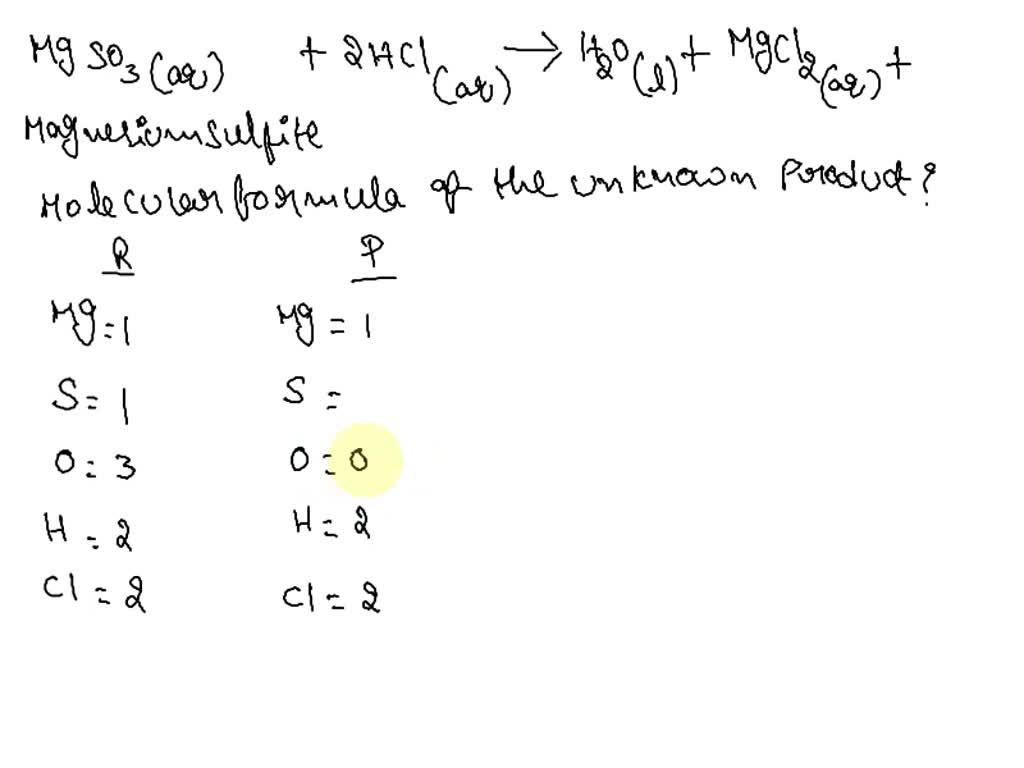 MgSO3(aq) + 2HCl(aq) → H2O(l) + MgCl2(aq) +
Magnesium sulfite
Molecular formula of the unknown product?
R P
Mg = 1 Mg = 1
S = 1 S =
O = 3 O = 0
H = 2 H = 2
Cl = 2 Cl = 2